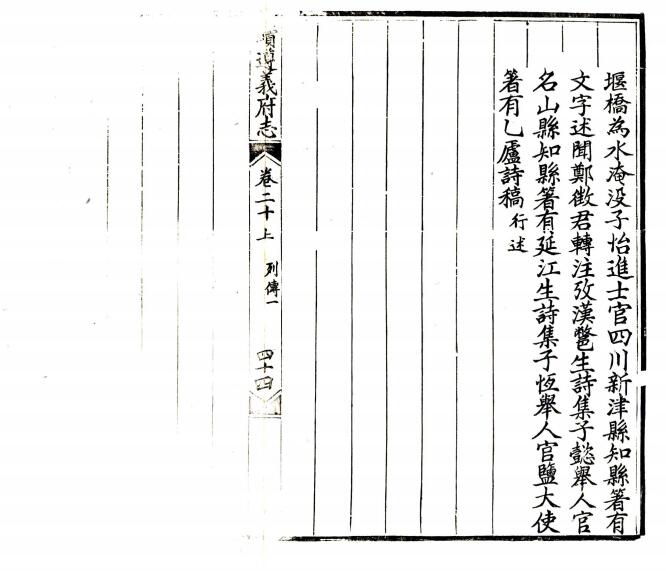 堰橋為水淹没子怡進士官四川新津縣知縣箸有
文字述聞鄭徵君轉注攷漢鷩生詩集子懿舉人官
名山縣知縣箸有延江生詩集子恆舉人官鹽大使
箸有乚廬詩稿 行述
續遵義府志
卷二十上
列傳一
四十四